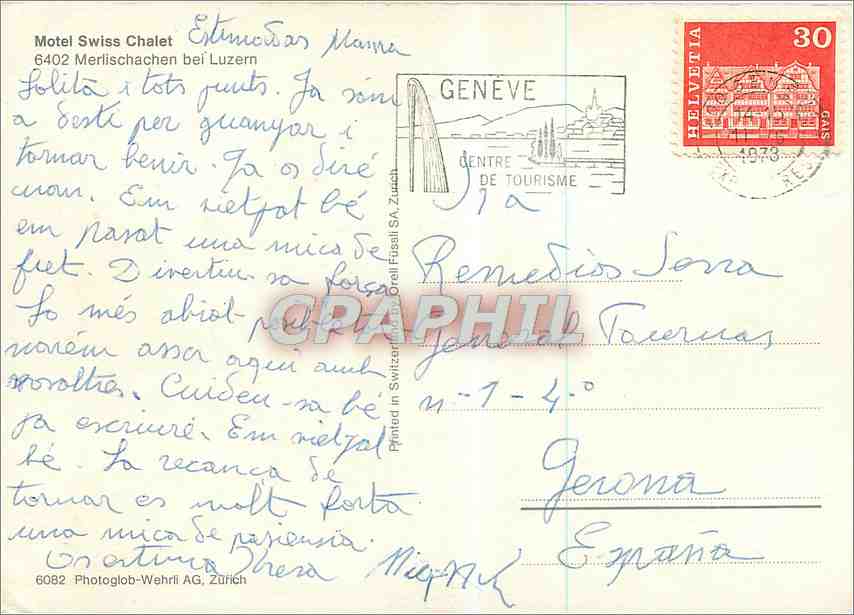 Motel Swiss Chalet
6402 Merlischachen bei Luzern
Estimadas Mama
Lolita i tots junts. Ja sóm
a desti per guanyar i
tornar benir. Ja os diré
cuan. Em vietjat bé
em pasat una mica de
fret. Divertiu-sa força
Lo més abiat posible
narém asser aqui amb
vosoltres. Cuideu-sa bé
ja escriuré. Em vietjat
bé. La recança de
tornar es molt forta
una mica de pasiensia.
Os estima Theresa
6082 Photoglob-Wehrli AG, Zürich
Printed in Switzerland by Orell Füssli SA, Zurich
GENÈVE
CENTRE
DE TOURISME
HELVETIA
30
GAIS
1973
Sra
Remedios Serra
General Tavernas
nº-1-4-º
Gerona
España
CPAPHIL